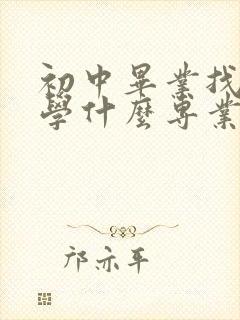 初中畢業找
學什麼專業
邝亦平